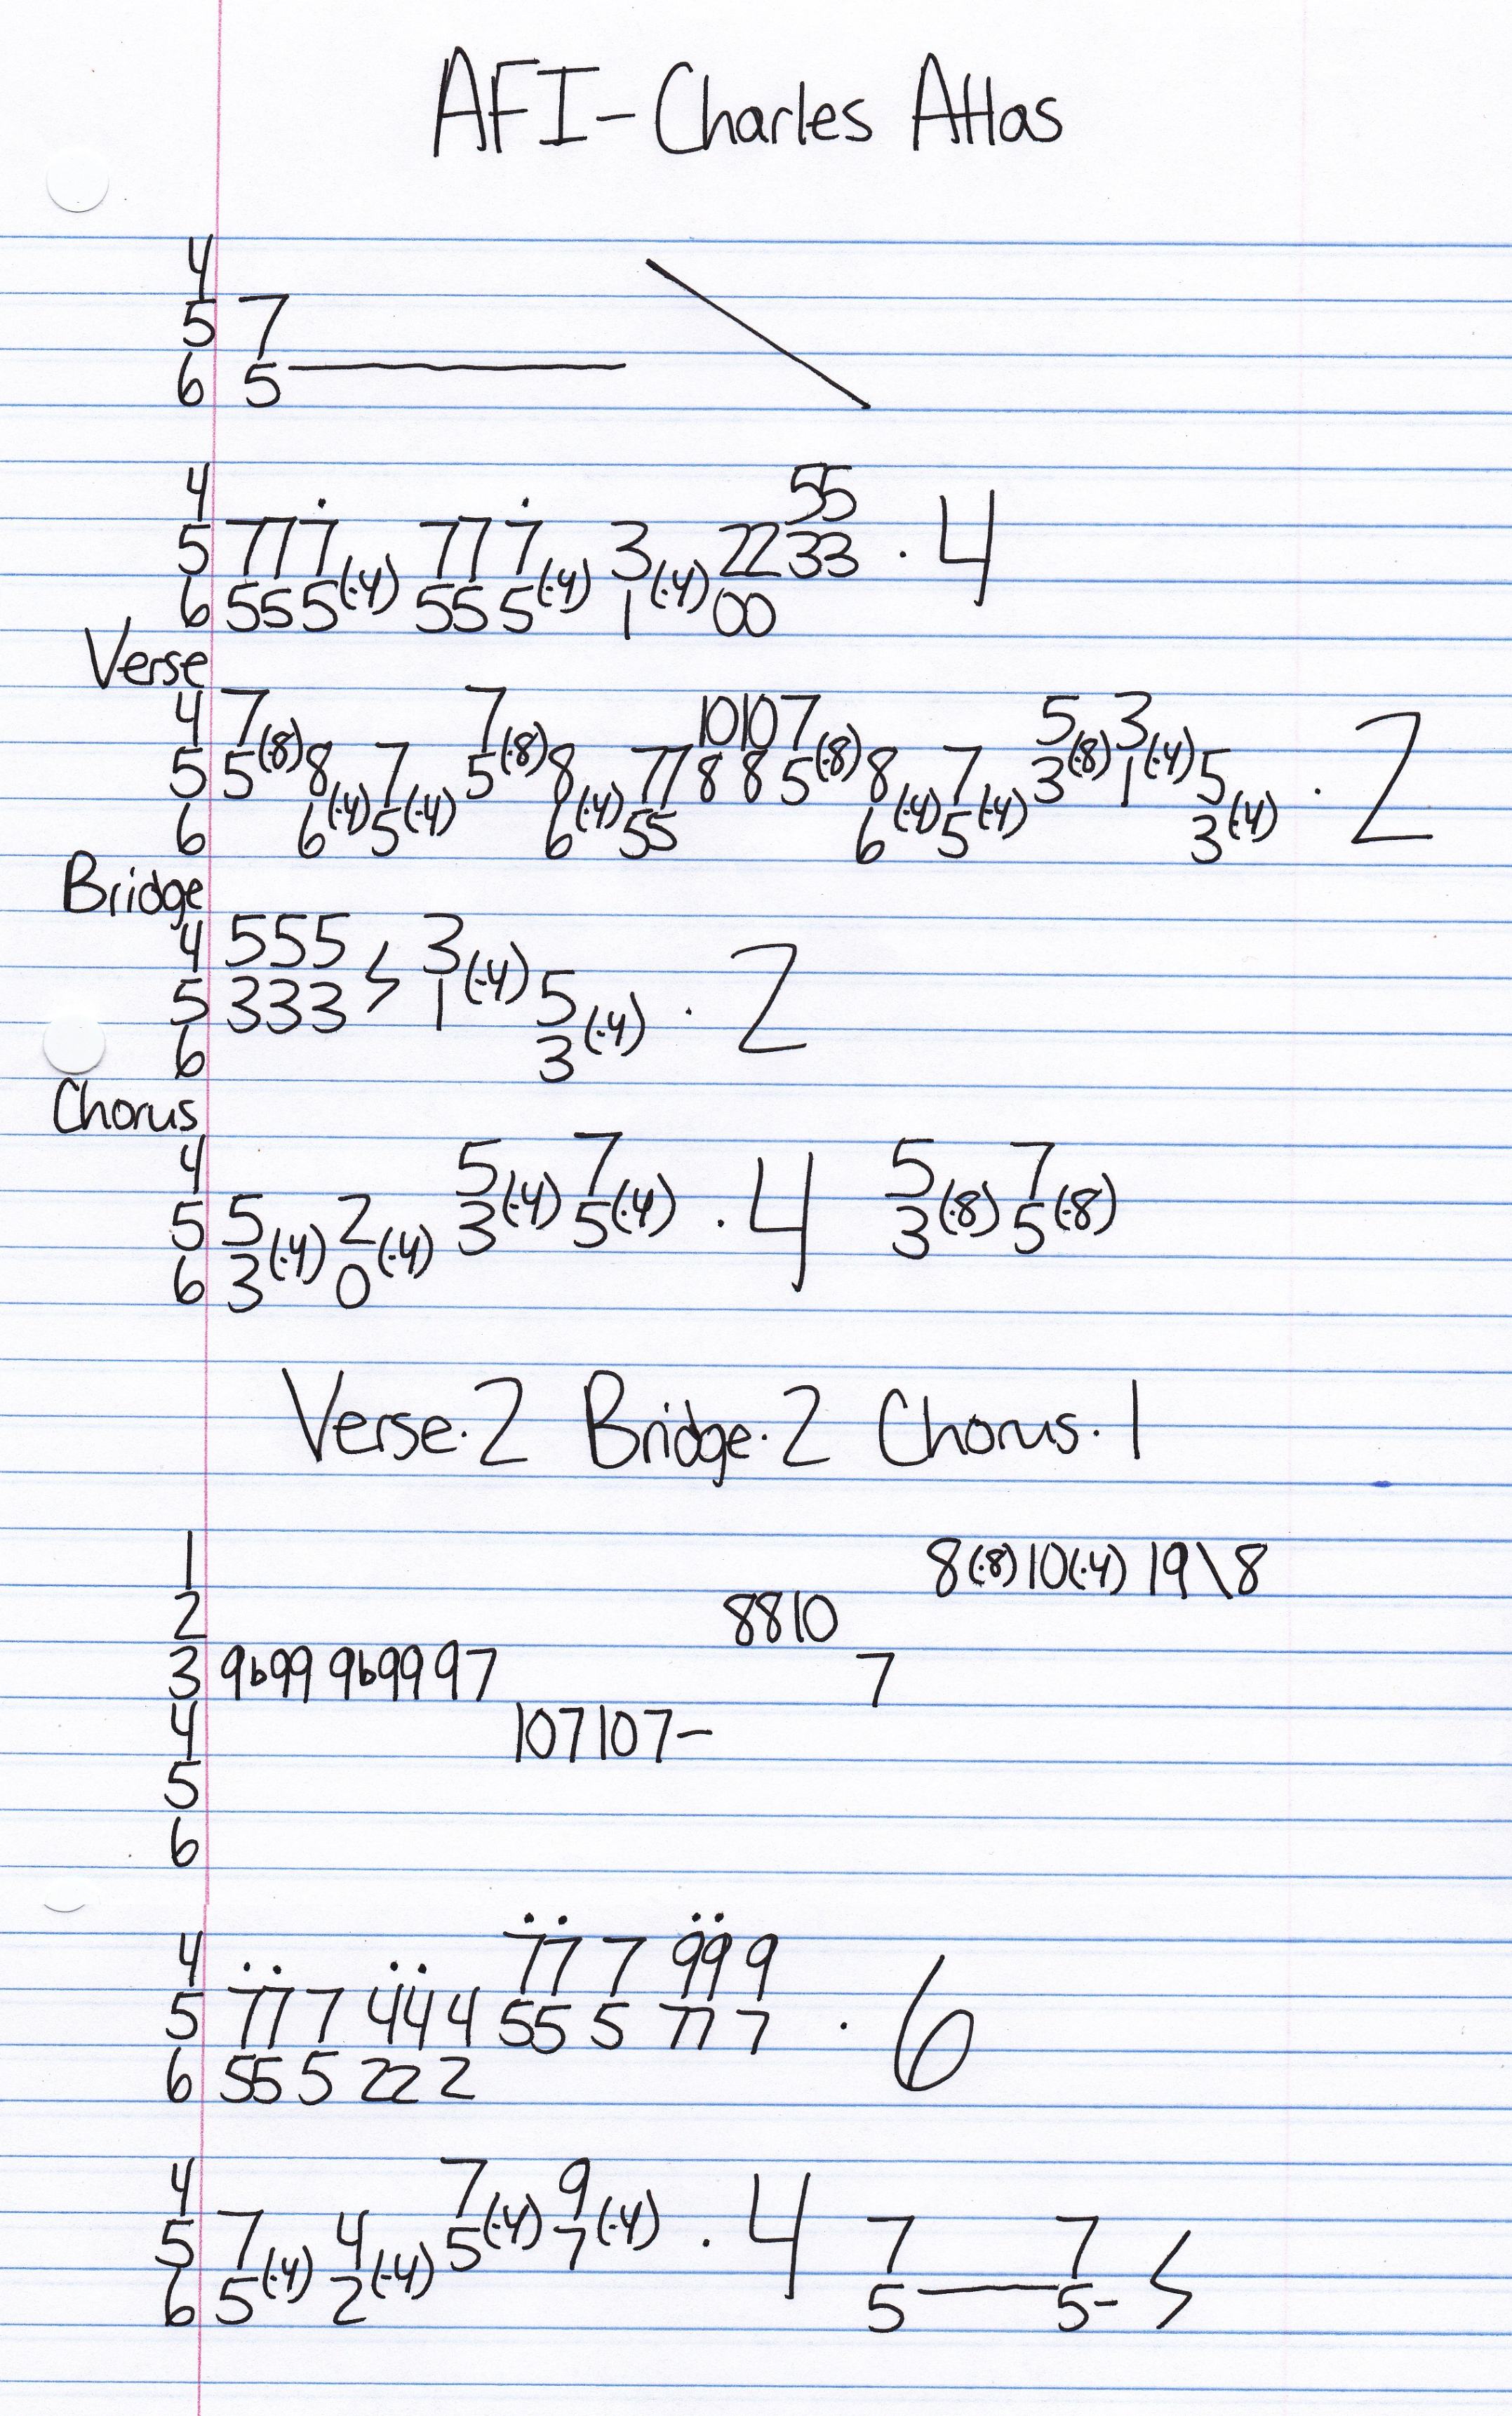 AFI-Charles Atlas
4
5 7
6 5
4 55
5 77 7 77 7 3 22 33 · 4
6 55 5(·4) 55 5(·4) 1(·4) 00
Verse
4 7 7 10 10 7 5 3
5 5(·8) 8 7 5(·8) 8 77 8 8 5(·8) 8 7 3(·8) 1(·4) 5 · 2
6 6(·4) 5(·4) 6(·4) 55 6(·4) 5(·4) 3(·4)
Bridge
4 555 3
5 333 1(·4) 5 · 2
6 3(·4)
Chorus
4 5 7 5 7
5 5 2 3(·4) 5(·4) · 4 3(·8) 5(·8)
6 3(·4) 0(·4)
Verse·2 Bridge·2 Chorus·1
1 8(·8) 10(·4) 19\8
2 8 8 10
3 9b99 9b99 97 7
4 107 107-
5
6
4 77 7 99 9
5 77 7 44 4 55 5 77 7 · 6
6 55 5 22 2
4 7 9
5 7 4 5(·4) 7(·4) · 4 7 7
6 5(·4) 2(·4) 5 5-